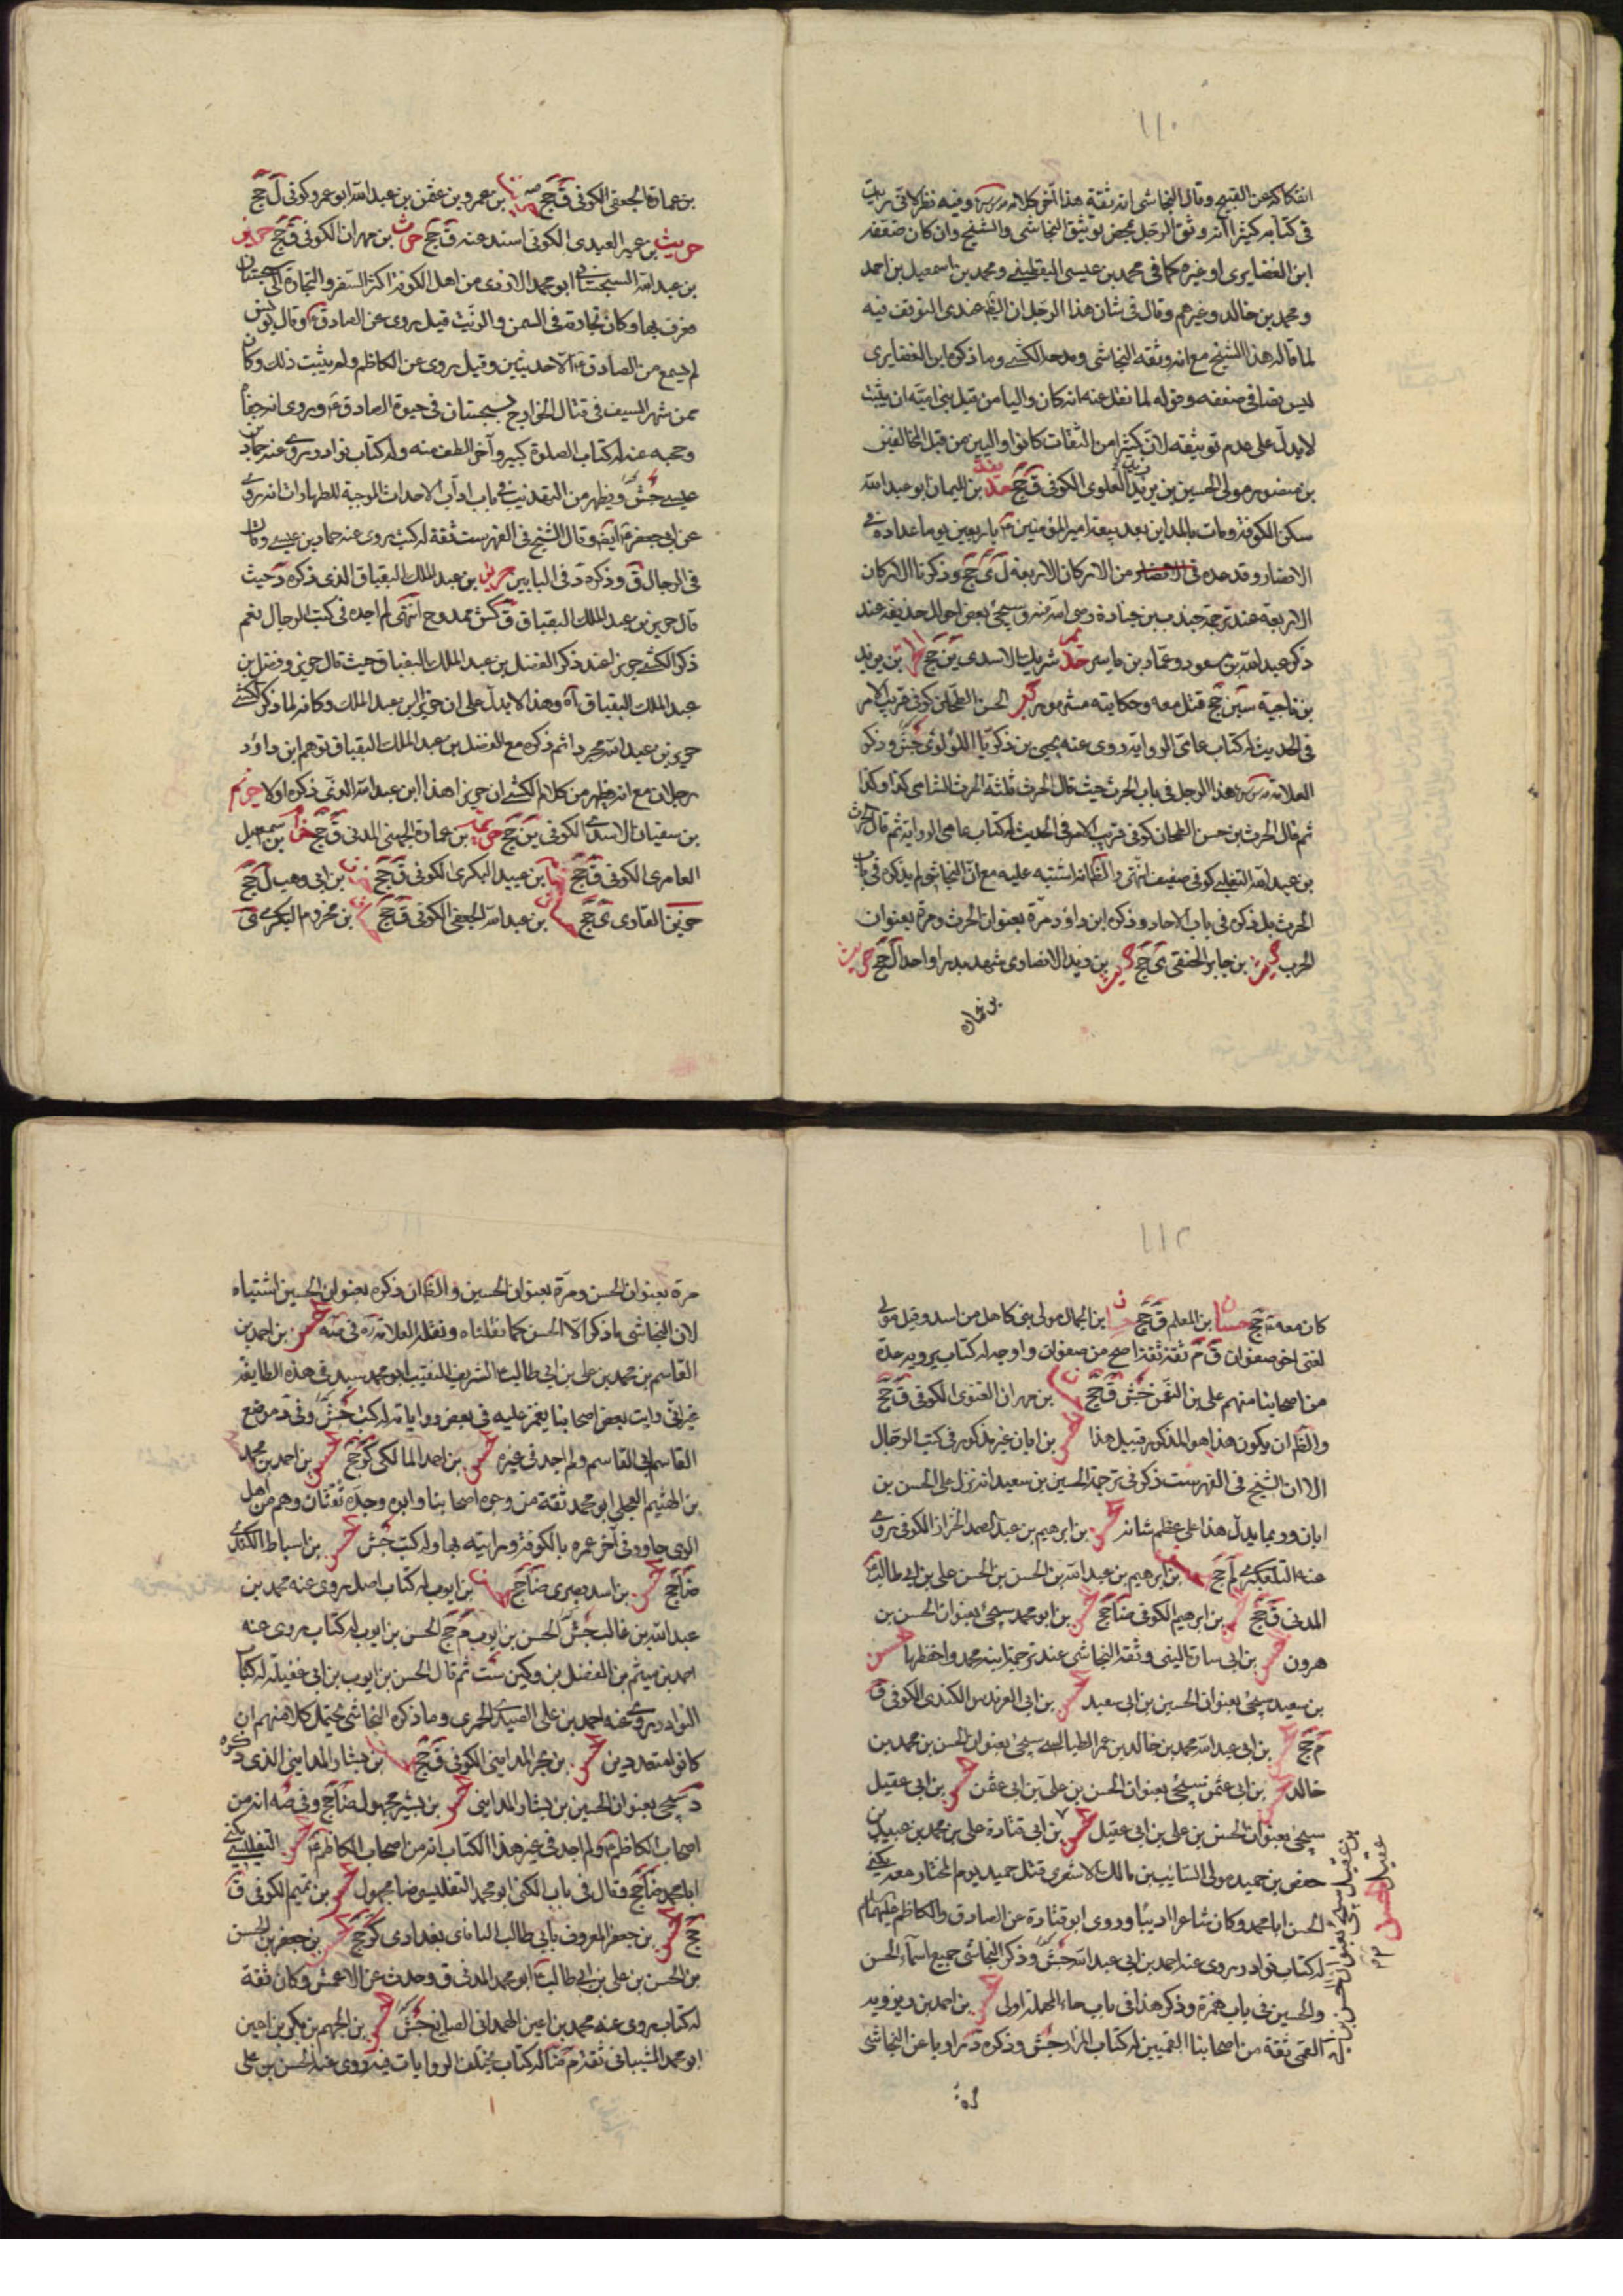 ١١٠
انفكاكه عن القبيح وقال النجاشي انه ثقة هذا آخر كلامه وفيه نظر لانه
في كتابه كثيرا انه وثق الرجل بمجرد توثيق النجاشي والشيخ وان كان ضعفه
ابن الغضايري او غيره كما في محمد بن عيسى اليقطيني ومحمد بن اسمعيل بن احمد
ومحمد بن خالد وغيرهم وقال في شان هذا الرجل ان الظ عندي التوقف فيه
لما قاله هذا الشيخ مع انه وثقه النجاشي ومدحه الكشي وما ذكره ابن الغضايري
ليس نصا في ضعفه وقوله لما نقل عنه انه كان واليا من قبل بني امية ان يثبت
لا يدل على عدم توثيقه لان كثيرا من الثقات كانوا واليين من قبل المخالفين
بن منصور مولى الحسين بن زيد العلوي الكوفي ق جخ حذيفة بن اليمان ابو عبد الله
سكن الكوفة ومات بالمداين بعد بيعة امير المؤمنين باربعين يوما عداده في
الانصار وقد عده من الاركان الاربعة ل ى جخ وذكرنا الاركان
الاربعة عند ترجمة جندب بن جنادة رضي الله عنه وسيجئ بعض احوال حذيفة عند
ذكر عبد الله بن مسعود وعمار بن ياسر شريك الاسدي ين جخ بن يزيد
بن ناجية سين جخ قتل معه وحكايته مشهورة الحسن الطحان كوفي قريب الامر
في الحديث له كتاب عامي الرواية روى عنه يحيى بن زكريا اللؤلؤي جش وذكر
العلامة هذا الرجل في باب الحرث حيث قال الحرث ثلثة الحرث الشامي كذا وكذا
ثم قال الحرث بن حسن الطحان كوفي قريب الامر في الحديث له كتاب عامي الرواية ثم قال الحرث
بن عبد الله التغلبي كوفي ضعيف انتهى والظ انه اشتبه عليه مع ان النجاشي لم يذكره في باب
الحرث بل ذكره في باب الآحاد وذكره ابن داود مرة بعنوان الحرث ومرة بعنوان
الحرب بن جابر الحنفي ى جخ بن زيد الانصاري شهد بدرا واحدا ل جخ حريث
بن عماره
بن عمارة الجعفي الكوفي ق جخ بن عمرو بن عثمن بن عبد الله ابو عمرو كوفي ل جخ
حريث بن عمير العبدي الكوفي اسند عنه ق جخ حريث بن مهران الكوفي ق جخ حريز
بن عبد الله السجستاني ابو محمد الازدي من اهل الكوفة اكثر السفر والتجارة الى سجستان
فعرف بها وكان تجارته في السمن والزيت قيل روى عن الصادق ع وقال يونس
لم يسمع من الصادق ع الا حديثين وقيل روى عن الكاظم ولم يثبت ذلك وكان
ممن شهر السيف في قتال الخوارج بسجستان في حيوة الصادق ع وروى انه جفاه
وحجبه عنه له كتاب الصلوة كبير وآخر الطف منه وله كتاب نوادر روى عنه حماد بن
عيسى جش ويظهر من التهذيب في باب آداب الاحداث الموجبة للطهارات انه روى
عن ابي جعفر ع ايضا وقال الشيخ في الفهرست ثقة له كتب روى عنه حماد بن عيسى وقال
في الرجال ق وذكره د في البابين حريز بن عبد الملك البقباق الذي ذكره د حيث
قال حريز بن عبد الملك البقباق ق كش ممدوح انتهى لم اجده في كتب الرجال نعم
ذكر الكشي حريزا عند ذكر الفضل بن عبد الملك البقباق حيث قال حريز وفضل بن
عبد الملك البقباق آه وهذا لا يدل على ان حريزا بن عبد الملك وكانه لما ذكر الكشي
حريز بن عبد الله مجردا ثم ذكره مع الفضل بن عبد الملك البقباق توهم ابن داود
رجلان مع انه ظهر من كلام الكشي ان حريزا هذا ابن عبد الله الذي ذكره اولا حزيم
بن سفيان الاسدي الكوفي ين جخ بن عمارة الجهني المدني ق جخ بن سمعيل
العامري الكوفي ق جخ بن عبيد البكري الكوفي ق جخ بن ابي وهب ل جخ
القاري ى جخ بن عبد الله الجعفي الكوفي ق جخ بن مخزوم البكري ق
١١٢
كان معه م جخ حسان بن المعلم ق جخ ابن الجمال مولى بني كاهل من اسد وقيل مولى
لغني اخو صفوان ق م ثقة ثقة اصح من صفوان واوجه له كتاب يرويه عدة
من اصحابنا منهم علي بن النعمن جش ق جخ بن مهران الغنوي الكوفي ق جخ
والظ ان يكون هذا هو المذكور قبيل هذا بن ابان غير مذكور في كتب الرجال
الا ان الشيخ في الفهرست ذكر في ترجمة الحسين بن سعيد انه نزل على الحسن بن
ابان وربما يدل هذا على عظم شانه بن ابرهيم بن عبد الصمد الخزاز الكوفي روى
عنه التلعكبري لم جخ بن ابرهيم بن عبد الله بن الحسن بن الحسن علي بن ابي طالب
المدني ق جخ بن ابرهيم الكوفي ضا جخ بن ابو محمد سيجئ بعنوان الحسن بن
هرون بن ابي سارة النيلي وثقه النجاشي عند ترجمة ابنه محمد واخفظها حسن
بن سعيد سيجئ بعنوان الحسين بن ابي سعيد بن ابي العرندس الكندي الكوفي ق
م جخ بن ابي عبد الله محمد بن خالد بن عمر الطيالسي سيجئ بعنوان الحسن بن محمد بن
خالد بن ابي عثمن سيجئ بعنوان الحسن بن علي بن ابي عثمن بن ابي عقيل
سيجئ بعنوان الحسن بن علي بن ابي عقيل بن ابي قتادة علي بن محمد بن عبيد بن
حفص بن حميد مولى السائب بن مالك الاشعري قتل حميد يوم المختار معه يكنى
الحسن ابا محمد وكان شاعرا اديبا وروى ابو قتادة عن الصادق والكاظم عليهما السلام
له كتاب نوادر روى عنه احمد بن ابي عبد الله جش وذكر النجاشي جميع اسماء الحسن
والحسين في باب همزة وذكر هذا في باب حاء المهملة اولى بن احمد بن ريذويه
القمي ثقة من اصحابنا القميين له كتاب المزار جش وذكره د راويا عن النجاشي
مرة بعنوان الحسن ومرة بعنوان الحسين والظ ان ذكره بعنوان الحسين اشتباه
لان النجاشي ما ذكر الا الحسن كما نقلناه ونقله العلامة ره في صه بن احمد بن
القاسم بن محمد بن علي بن ابي طالب الشريف النقيب ابو محمد سيد في هذه الطايفة
غير اني رايت بعض اصحابنا يغمز عليه في بعض رواياته له كتب جش وفي د موضع
القاسم ابي القاسم ولم اجد في غيره بن احمد المالكي كر جخ بن احمد بن محمد
بن الهيثم العجلي ابو محمد ثقة من وجوه اصحابنا وابوه وجده ثقتان وهم من اهل
الري جاور في آخر عمره بالكوفة ورايته بها وله كتب جش بن اسباط الكندي
ضا جخ بن اسد بصري ضا جخ بن ايوب له كتاب اصل روى عنه محمد بن
عبد الله بن غالب جش الحسن بن ايوب م جخ الحسن بن ايوب له كتاب روى عنه
احمد بن ميثم بن الفضل بن دكين ست ثم قال الحسن بن ايوب بن ابي عقيلة له كتاب
النوادر روى عنه احمد بن علي الصيدي الحميري وما ذكره النجاشي يحتمل كلا منهم ان
كانوا متعددين بن بحر المدايني الكوفي ق جخ بن بشار المدايني الذي ذكره
د سيجئ بعنوان الحسين بن بشار المدايني بن بشير مجهول ضا جخ وفي صه انه من
اصحاب الكاظم ع ولم اجد في غير هذا الكتاب انه من اصحاب الكاظم ع التفليسي يكنى
ابا محمد ضا جخ وقال في باب الكنى ابو محمد التفليسي ضا مجهول بن تميم الكوفي ق
جخ بن جعفر المعروف بابي طالب الفافاي بغدادي كر جخ بن جعفر بن الحسن
بن الحسن بن علي بن ابي طالب ابو محمد المدني ق وحدث عن الاعمش وكان ثقة
له كتاب روى عنه محمد بن اعين الهمداني الصايغ جش بن الجهم بن بكير بن اعين
ابو محمد الشيباني ثقة م ضا له كتاب يختلف الروايات فيه روى عنه الحسن بن علي